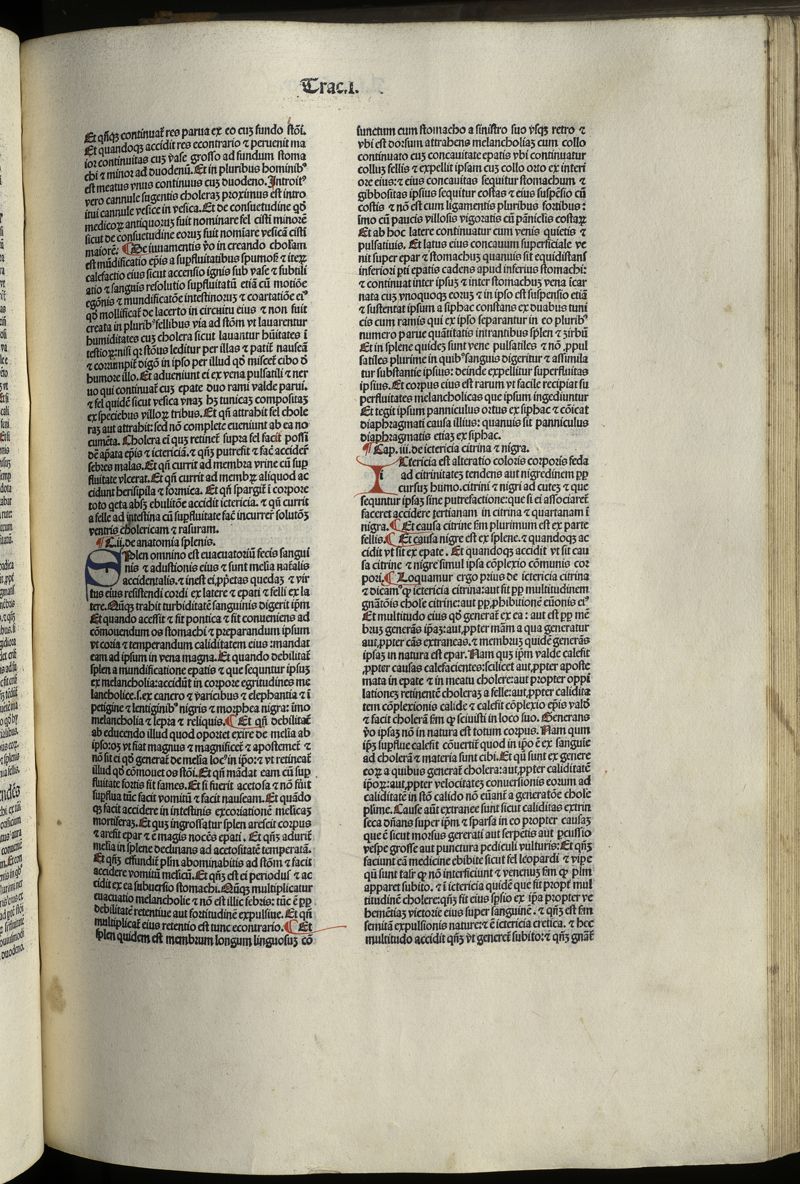 Trac.i.
Et qñqꝫ continuat̃ res parua ex eo cuꝫ fundo stõi.
Et quandoqꝫ accidit res econtrario ⁊ peruenit ma
ior continuitas cuꝫ vase grosso ad fundum stoma
chi ⁊ minor ad duodenũ. Et in pluribus hominibꝰ
est meatus vnus continuus cuꝫ duodeno. Introitꝰ
vero cannule sugentis choleraꝫ proximus est intro
itui cannule vesice in vesica. Et de consuetudine qđ
medicoꝝ antiquoꝝ fuit nominare fel cisti minorẽ
sicut de consuetudine eoruꝫ fuit nomiare vesicã cisti
maiorẽ. ¶ De iuuamentis ṽo in creando cholam
est mũdificatio ep̃is a supfluitatibus spumoẜ ⁊ iteꝝ
calefactio eius sicut accensio ignis sub vase ⁊ subtili
atio ⁊ sanguis resolutio supfluitatũ etiã cũ motiõe
egõnis ⁊ mundificatõe intestinoꝝ ⁊ coartatiõe eiꝰ
qđ mollificat̃ de lacerto in circuitu eius ⁊ non fuit
creata in pluribꝰ fellibus via ad stõm vt lauarentur
humiditates cuꝫ cholera sicut lauantur hũitates ĩ
testioꝝ: nisi qꝛ stõus leditur per illas ⁊ patit̃ nauseã
⁊ corrumpit̃ digõ in ipso per illud qđ miscet̃ cibo đ
humore illo. Et adueniunt ei ex vena pulsatili ⁊ ner
uo qui continuat̃ cuꝫ epate duo rami valde parui.
⁊ fel quidẽ sicut vesica vnaꝫ hꝫ tunicaꝫ compositaꝫ
ex speciebus villoꝝ tribus. Et qñ attrahit fel chole
raꝫ aut attrahit: sed nõ complete eueniunt ab ea no
cumẽta. Cholera ei quꝫ retinet̃ supra fel facit possi
dẽ apata epis ⁊ ictericiã. ⁊ qñꝫ putrefit ⁊ fac̃ acciđe̾
febres malas. Et qñ currit ad membra vrine cũ sup
fluitate vlcerat. Et qñ currit ad membꝝ aliquod ac
cidunt herisipila ⁊ formica. Et qñ spargit̃ ĩ corpore
toto qeta absꝫ ebulitõe accidit ictericia. ⁊ qñ currit
a felle ad intestina cũ supfluitate fac̃ incurrer̃ solutõꝫ
ventris cholericam ⁊ rasuram.
¶ C.ii. de anatomia splenis.
Splen omnino est euacuatoriũ fecis sangui
nis ⁊ adustionis eius ⁊ sunt melĩa nat̃alis
accidentalis. ⁊ inest ei ꝓpẽtas quedaꝫ ⁊ vir
tus eius resistendi cordi ex latere ⁊ epati ⁊ felli ex la
tere. Cũqꝫ trahit turbiditatẽ sanguinis digerit ip̃m
Et quando acessit ⁊ fit pontica ⁊ fit conueniens ad
cõmouendum os stomachi ⁊ preparandum ipsum
vt coria ⁊ temperandum caliditatem eius: mandat
eam ad ipsum in vena magna. Et quando debilitat̃
splen a mundificatione epatis ⁊ que sequuntur ipsuꝫ
ex melancholia: accidũt in corpore egritudines me
lancholice. ẜ. ex cancro ⁊ varicibus ⁊ elephantia ⁊ ĩ
petigine ⁊ lentiginibꝰ nigris ⁊ morphea nigra: imo
melancholia ⁊ lepra ⁊ reliquis. ¶ Et qñ debilitat̃
ab educendo illud quod oportet exire de melĩa ab
ipso: oꝫ vt fiat magnus ⁊ magnificet̃ ⁊ apostemet̃ ⁊
nõ sit ei qđ generat̃ de melĩa locꝰ in ip̃o: ⁊ vt retineat̃
illud qđ cõmouet os stõi. Et qñ mãdat eam cũ sup
fluitate fortis fit fames. Et si fuerit acetosa ⁊ nõ fũit
supflua tũc facit vomitũ ⁊ facit nauseam. Et quãdo
qꝫ facit accidere in intestinis excoriationẽ melicaꝫ
mortiferaꝫ. Et quꝫ ingrossatur splen arescit corpus
⁊ arefit epar ⁊ ẽ magis nocẽs epati. Et qñꝫ adurit̃
melĩa in splene declinans ad acetositatẽ temperatã.
Et qñꝫ effundit̃ plim abominabitis ad stõm ⁊ facit
accidere vomitũ melicũ. Et qñꝫ est ei periodus ⁊ ac
cidit ex ea subuersio stomachi. Cũqꝫ multiplicatur
euacuatio melancholie ⁊ nõ est illic febris: tũc ẽ ꝓp
debilitatẽ retentiue aut fortitudinẽ expulsiue. Et qñ
multiplicat̃ eius retentio est tunc econtrario. ¶ Et
splen quidem est membrum longum linguosuꝫ cõ
iunctum cum stomacho a sinistro suo vsqꝫ retro ⁊
vbi est dorsum attrahens melancholiaꝫ cum collo
continuato cuꝫ concauitate epatis vbi continuatur
collum fellis ⁊ expellit ipsam cuꝫ collo orto ex interi
ore eius: ⁊ eius concauitas sequitur stomachum ⁊
gibbositas ipsius sequitur costas ⁊ eius suspẽsio cũ
costis ⁊ nõ est cum ligamentis pluribus fortibus:
imo cũ paucis villosis vigoratis cũ pãniclis costaꝝ
Et ab hoc latere continuatur cum venis quietis ⁊
pulsatiuis. Et latus eius concauum superficiale ve
nit super epar ⁊ stomachuꝫ quanuis sit equidistans
inferiori pti epatis cadens apud inferius stomachi:
⁊ continuat inter ipsuꝫ ⁊ inter stomachuꝫ vena iẽar
nata cuꝫ vnoquoqꝫ eoruꝫ ⁊ in ipso est suspensio etiã
⁊ sustentat̃ ipsum a siphac constans ex duabus tuni
cis cum ramis qui ex ipso separantur in eo pluribꝰ
numero parue quantitatis intrantibus splen ⁊ zirbũ
Et in splene quideꝫ sunt vene pulsatiles ⁊ nõ ꝓpul
satiles plurime in quibꝰ sanguis digeritur ⁊ assimila
tur substantie ipsius: deinde expellitur superfluitas
ipsius. Et corpus eius est rarum vt facile recipiat su
perfluitates melancholicas que ipsum ingrediuntur
Et tegit ipsum panniculus ortus ex siphac ⁊ cõicat
diaphragmati causa illius: quanuis sit panniculus
diaphragmatis etiaꝫ ex siphac.
¶ Cap. iii. de ictericia citrina ⁊ nigra.
Ictericia est alteratio coloris corporis feda
ad citrinitateꝫ tendens aut nigredinem ꝓp
cursuꝫ humo. citrini ⁊ nigri ad cuteꝫ ⁊ que
sequntur ipsaꝫ sine putrefactione: que si ei associaret̃
faceret accidere tertianam in citrina ⁊ quartanam ĩ
nigra. ¶ Et causa citrine fm plurimum est ex parte
fellis. ¶ Et causa nigre est ex splene. ⁊ quandoqꝫ ac
cidit vt sit ex epate. Et quandoqꝫ accidit vt sit cau
sa citrine ⁊ nigre simul ipsa cõplexio cõmunis cor
pori. ¶ Loquamur ergo prius de ictericia citrina
⁊ dicamꝰ ꝙ ictericia citrina: aut fit ꝓp multitudinem
gnatõnis chole citrine: aut ꝓp ꝓhibitionẽ eũonis eiꝰ
Et multitudo eius qđ generat̃ ex ea: aut est ꝓp mẽ
bruꝫ generãs ip̃aꝫ: aut ꝓpter mãm a qua generatur
aut ꝓpter cãs extraneas. ⁊ membruꝫ quidẽ generãs
ipsaꝫ in natura est epar. Nam quꝫ ip̃m valde calefit
ꝓpter causas calefacientes: scilicet aut ꝓpter aposte
mata in epate ⁊ in meatu cholere: aut propter oppi
lationeꝫ retinentẽ choleraꝫ a felle: aut ꝓpter calidita
tem cõplexionis calide ⁊ calefit cõplexio ep̃is valđ
⁊ facit cholerã fm ꝙ sciuisti in loco suo. Generans
ṽo ipsaꝫ nõ in natura est totum corpus. Nam qum
ip̃ꝫ supflue calefit cõuertit quod in ip̃o ẽ ex sanguie
ad cholerã ⁊ materia sunt cibi. Et qũ sunt ex genere
eoꝝ a quibus generat̃ cholera: aut ꝓpter caliditatẽ
ip̃oꝝ: aut ꝓpter velocitateꝫ conuersionis eorum ad
caliditatẽ in stõ calido nõ eũant̃ a generatõe chole̾
plime. Cause aũt extranee sunt sicut caliditas extrin
seca dñans super ip̃m ⁊ sparsa in eo propter causaꝫ
que ẽ sicut morsus gererati aut serpẽtis aut ꝑcussio
vespe grosse aut punctura pediculi vulturis: Et qñꝫ
faciunt eã medicine ebibite sicut fel leopardi ⁊ vipe̾
qũ sunt taliꝝ ꝙ nõ interficiunt ⁊ venenuꝫ fm ꝙ plm
apparet subito. ⁊ ĩ ictericia quidẽ que fit propt̃ mul
titudinẽ cholere: qñꝫ fit eius ipsio ex ip̃a propter ve
hemẽtiaꝫ victorie eius super sanguinẽ. ⁊ qñꝫ est fm
semitã expulsionis nature: ⁊ ẽ ictericia cretica. ⁊ hec
multitudo accidit qñꝫ vt generet̃ subito: ⁊ qñꝫ gnat̃